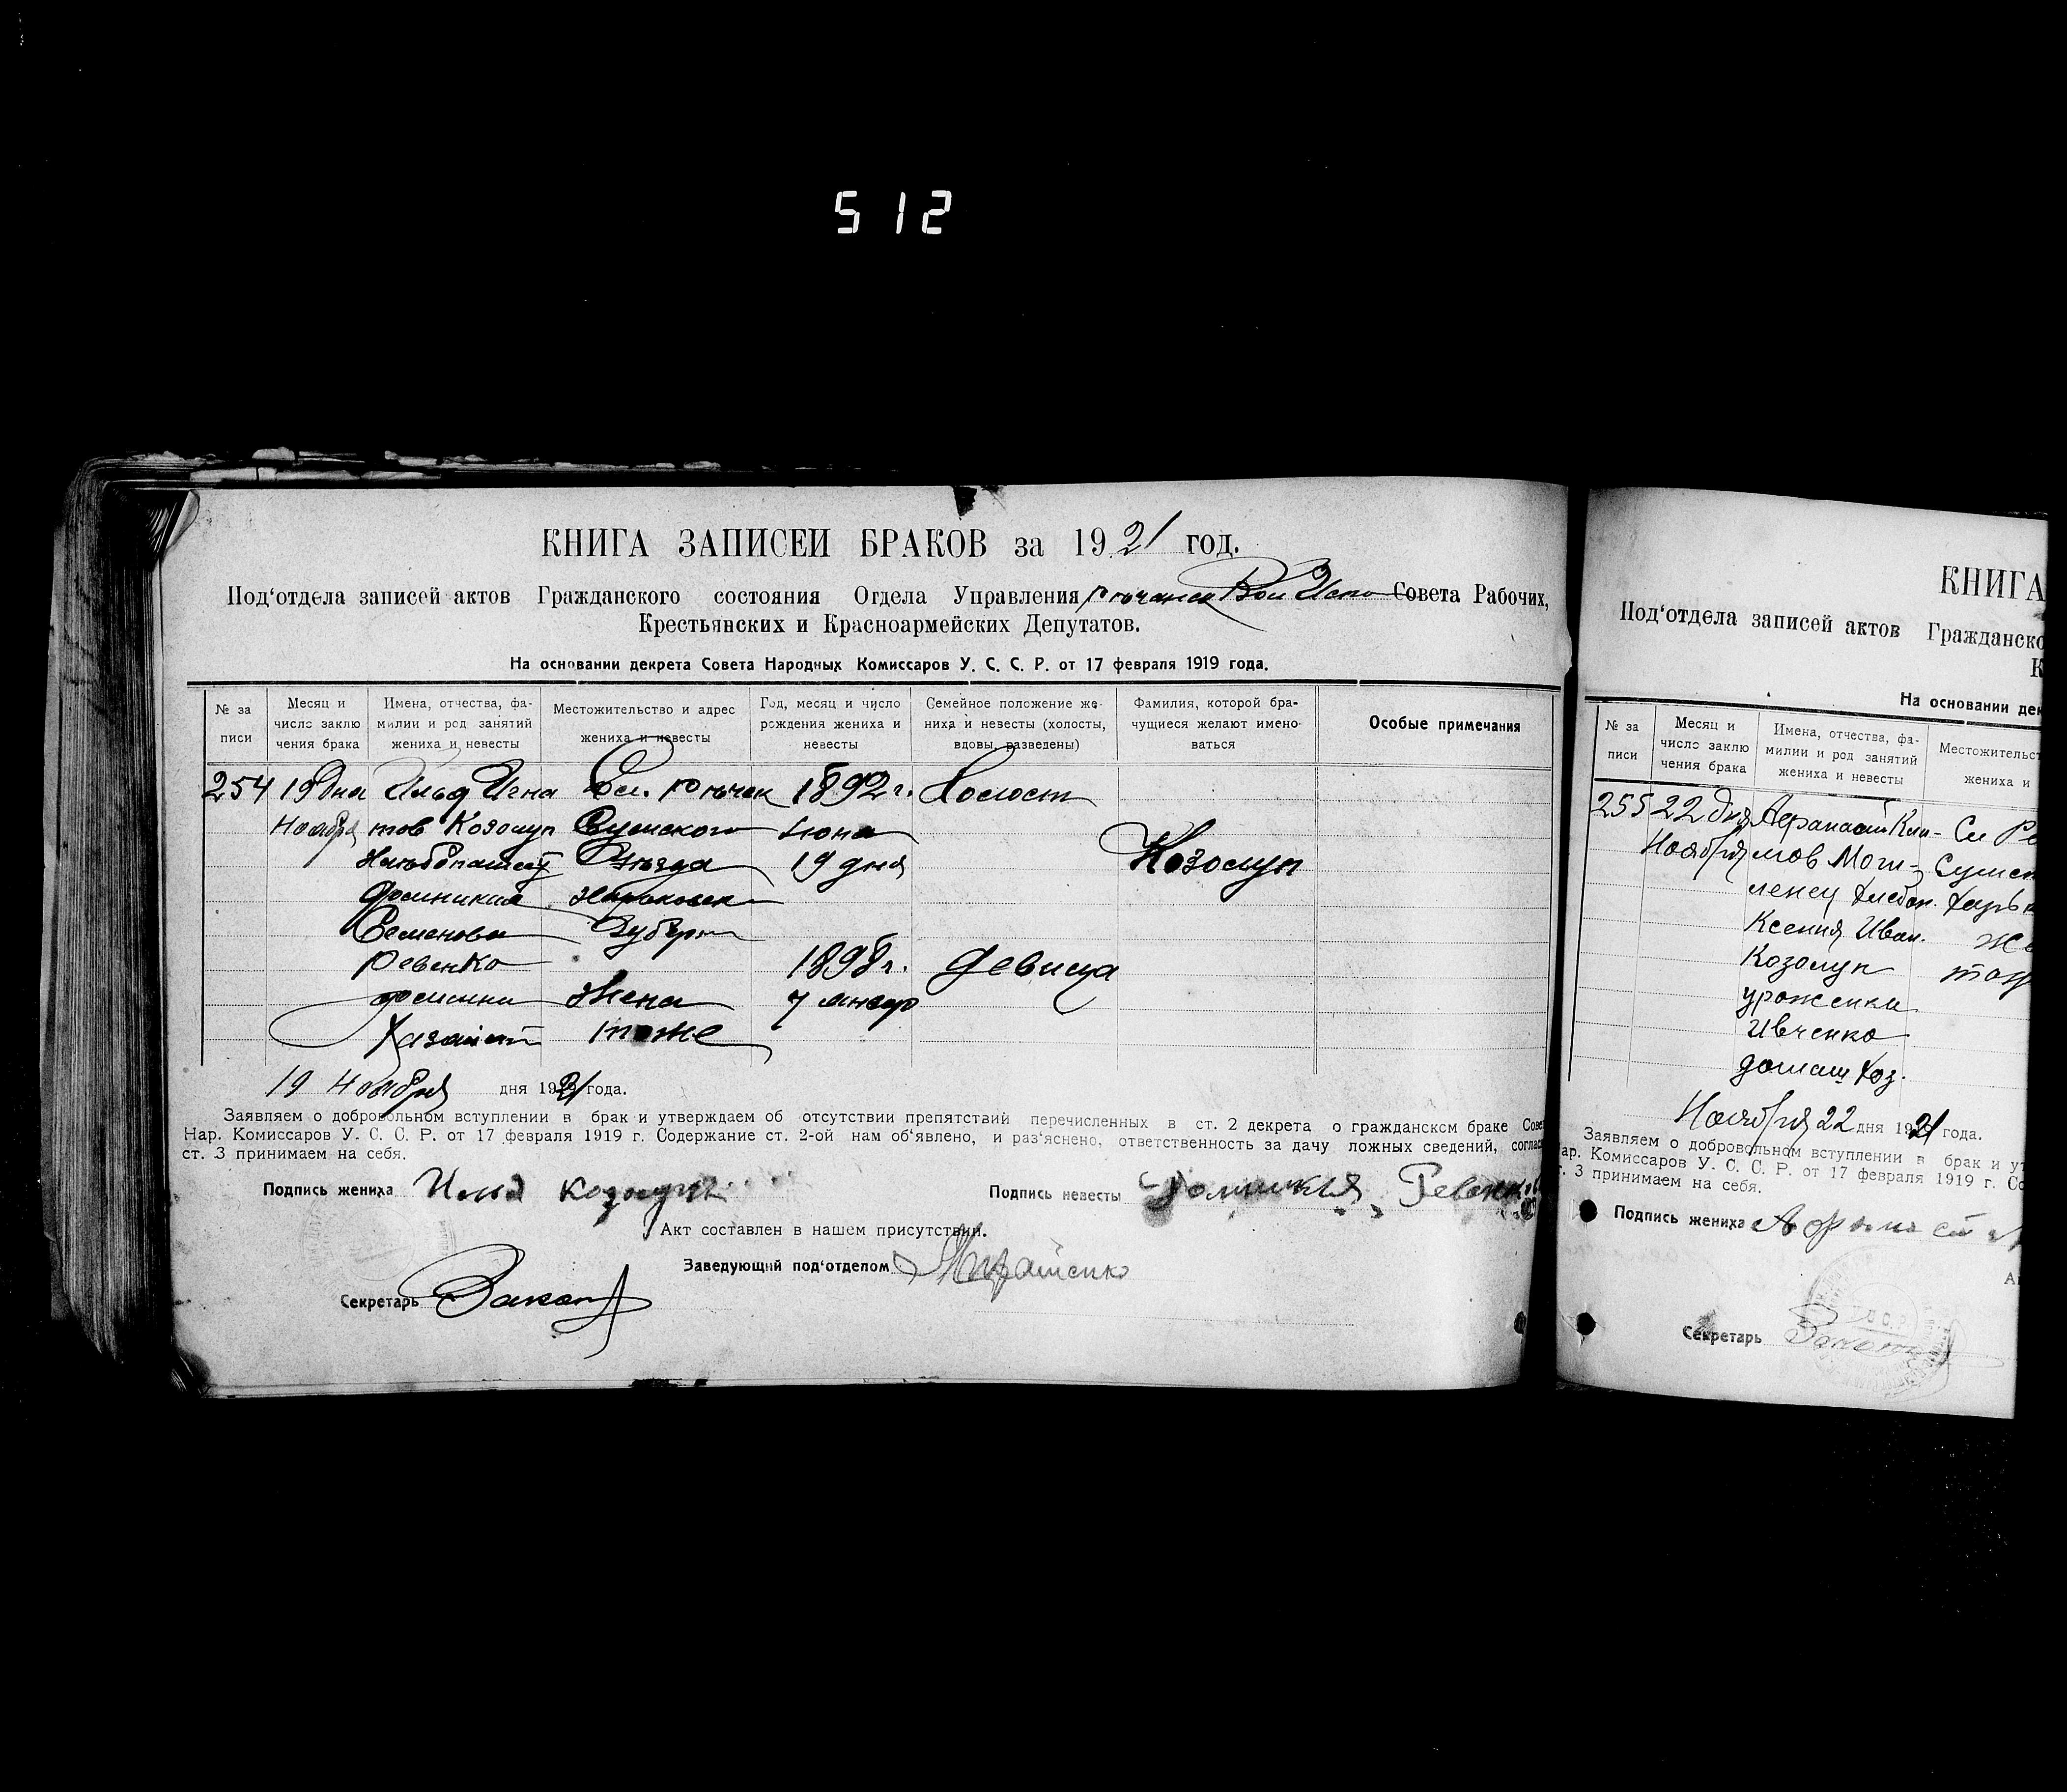 512
КНИГА ЗАПИСЕЙ БРАКОВ за 1921 год.
Под‘отдела записей актов Гражданского состояния Отдела Управления Совета Рабочих,
Крестьянских и Красноармейских Депутатов.
На основании декрета Совета Народных Комиссаров У. С. С. Р. от 17 февраля 1919 года.
№ за писи
Месяц и число заклю чения брака
Имена, отчества, фа- милии и род занятий жениха и невесты
Местожительство и адрес жениха и невесты
Год, месяц и число рождения жениха и невесты
Семейное положение же- ниха и невесты (холосты, вдовы, разведены)
Фамилия, которой бра- чущиеся желают имено- ваться
Особые примечания
254 19 дня Илья Игна 1892 г. Холост
Ноября тов Козолуп Сумского Июня
Хлебопашец Уезда 19 дня Козолуп
Домникия Харьковск
Семенова Губерн
Ревенко 1898 г. девица
домашн жена 7 январ
Хазяйст тоже
19 Ноября дня 1921 года.
Заявляем о добровольном вступлении в брак и утверждаем об отсутствии препятствий перечисленных в ст. 2 декрета о гражданском браке Сове
Нар. Комиссаров У. С. С. Р. от 17 февраля 1919 г. Содержание ст. 2-ой нам об‘явлено, и раз‘яснено, ответственность за дачу ложных сведений, соглас
ст. 3 принимаем на себя.
Подпись жениха Илья Козолуп
Подпись невесты Домникия Ревенкова
Акт составлен в нашем присутствии.
Заведующий под‘отделом
Секретарь
КНИГА
Под‘отдела записей актов Гражданско
К
На основании дек
№ за писи
Месяц и число заклю чения брака
Имена, отчества, фа- милии и род занятий жениха и невесты
Местожительст жениха и
255 22 дня Афанасий Кли- Сл Ре
Ноября мов Моги- Сумск
ленец Хлебоп. Харьк
Ксения Иван. же
Козолуп тож
уроженка
Ивченко
домаш хоз.
Ноября 22 дня 1921 года.
Заявляем о добровольном вступлении в брак и ут
ар. Комиссаров У. С. С. Р. от 17 февраля 1919 г. Со
т. 3 принимаем на себя.
Подпись жениха Афанасий
А
Секретарь